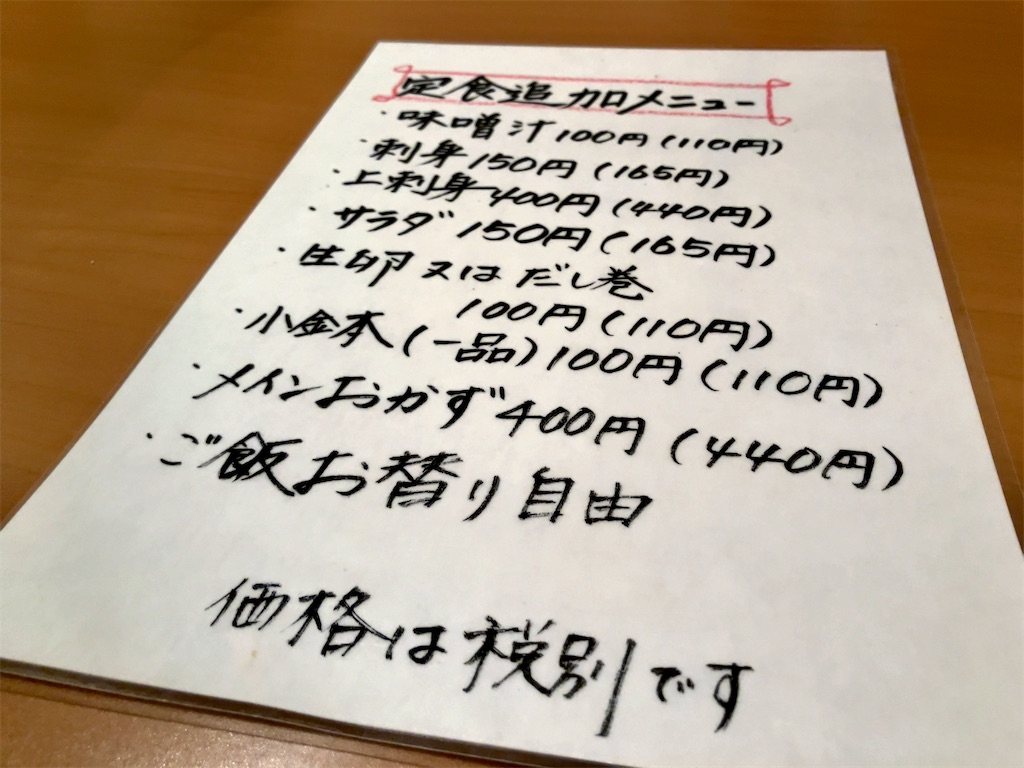 定食追加メニュー
・味噌汁100円(110円)
・刺身150円(165円)
・上刺身400円(440円)
・サラダ150円(165円)
・生卵又はだし巻
100円(110円)
・小金本(一品)100円(110円)
・メインおかず400円(440円)
・ご飯お替り自由
価格は税別です